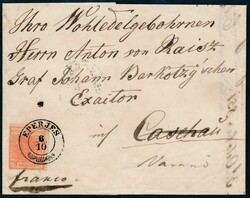 Ihro Wohledelgebohrnen
Herrn Anton von Raisz
Graf Johann Barkotzÿ'schen
Exactor
in Caschau
Varanó
EPERJES
6
10
franco